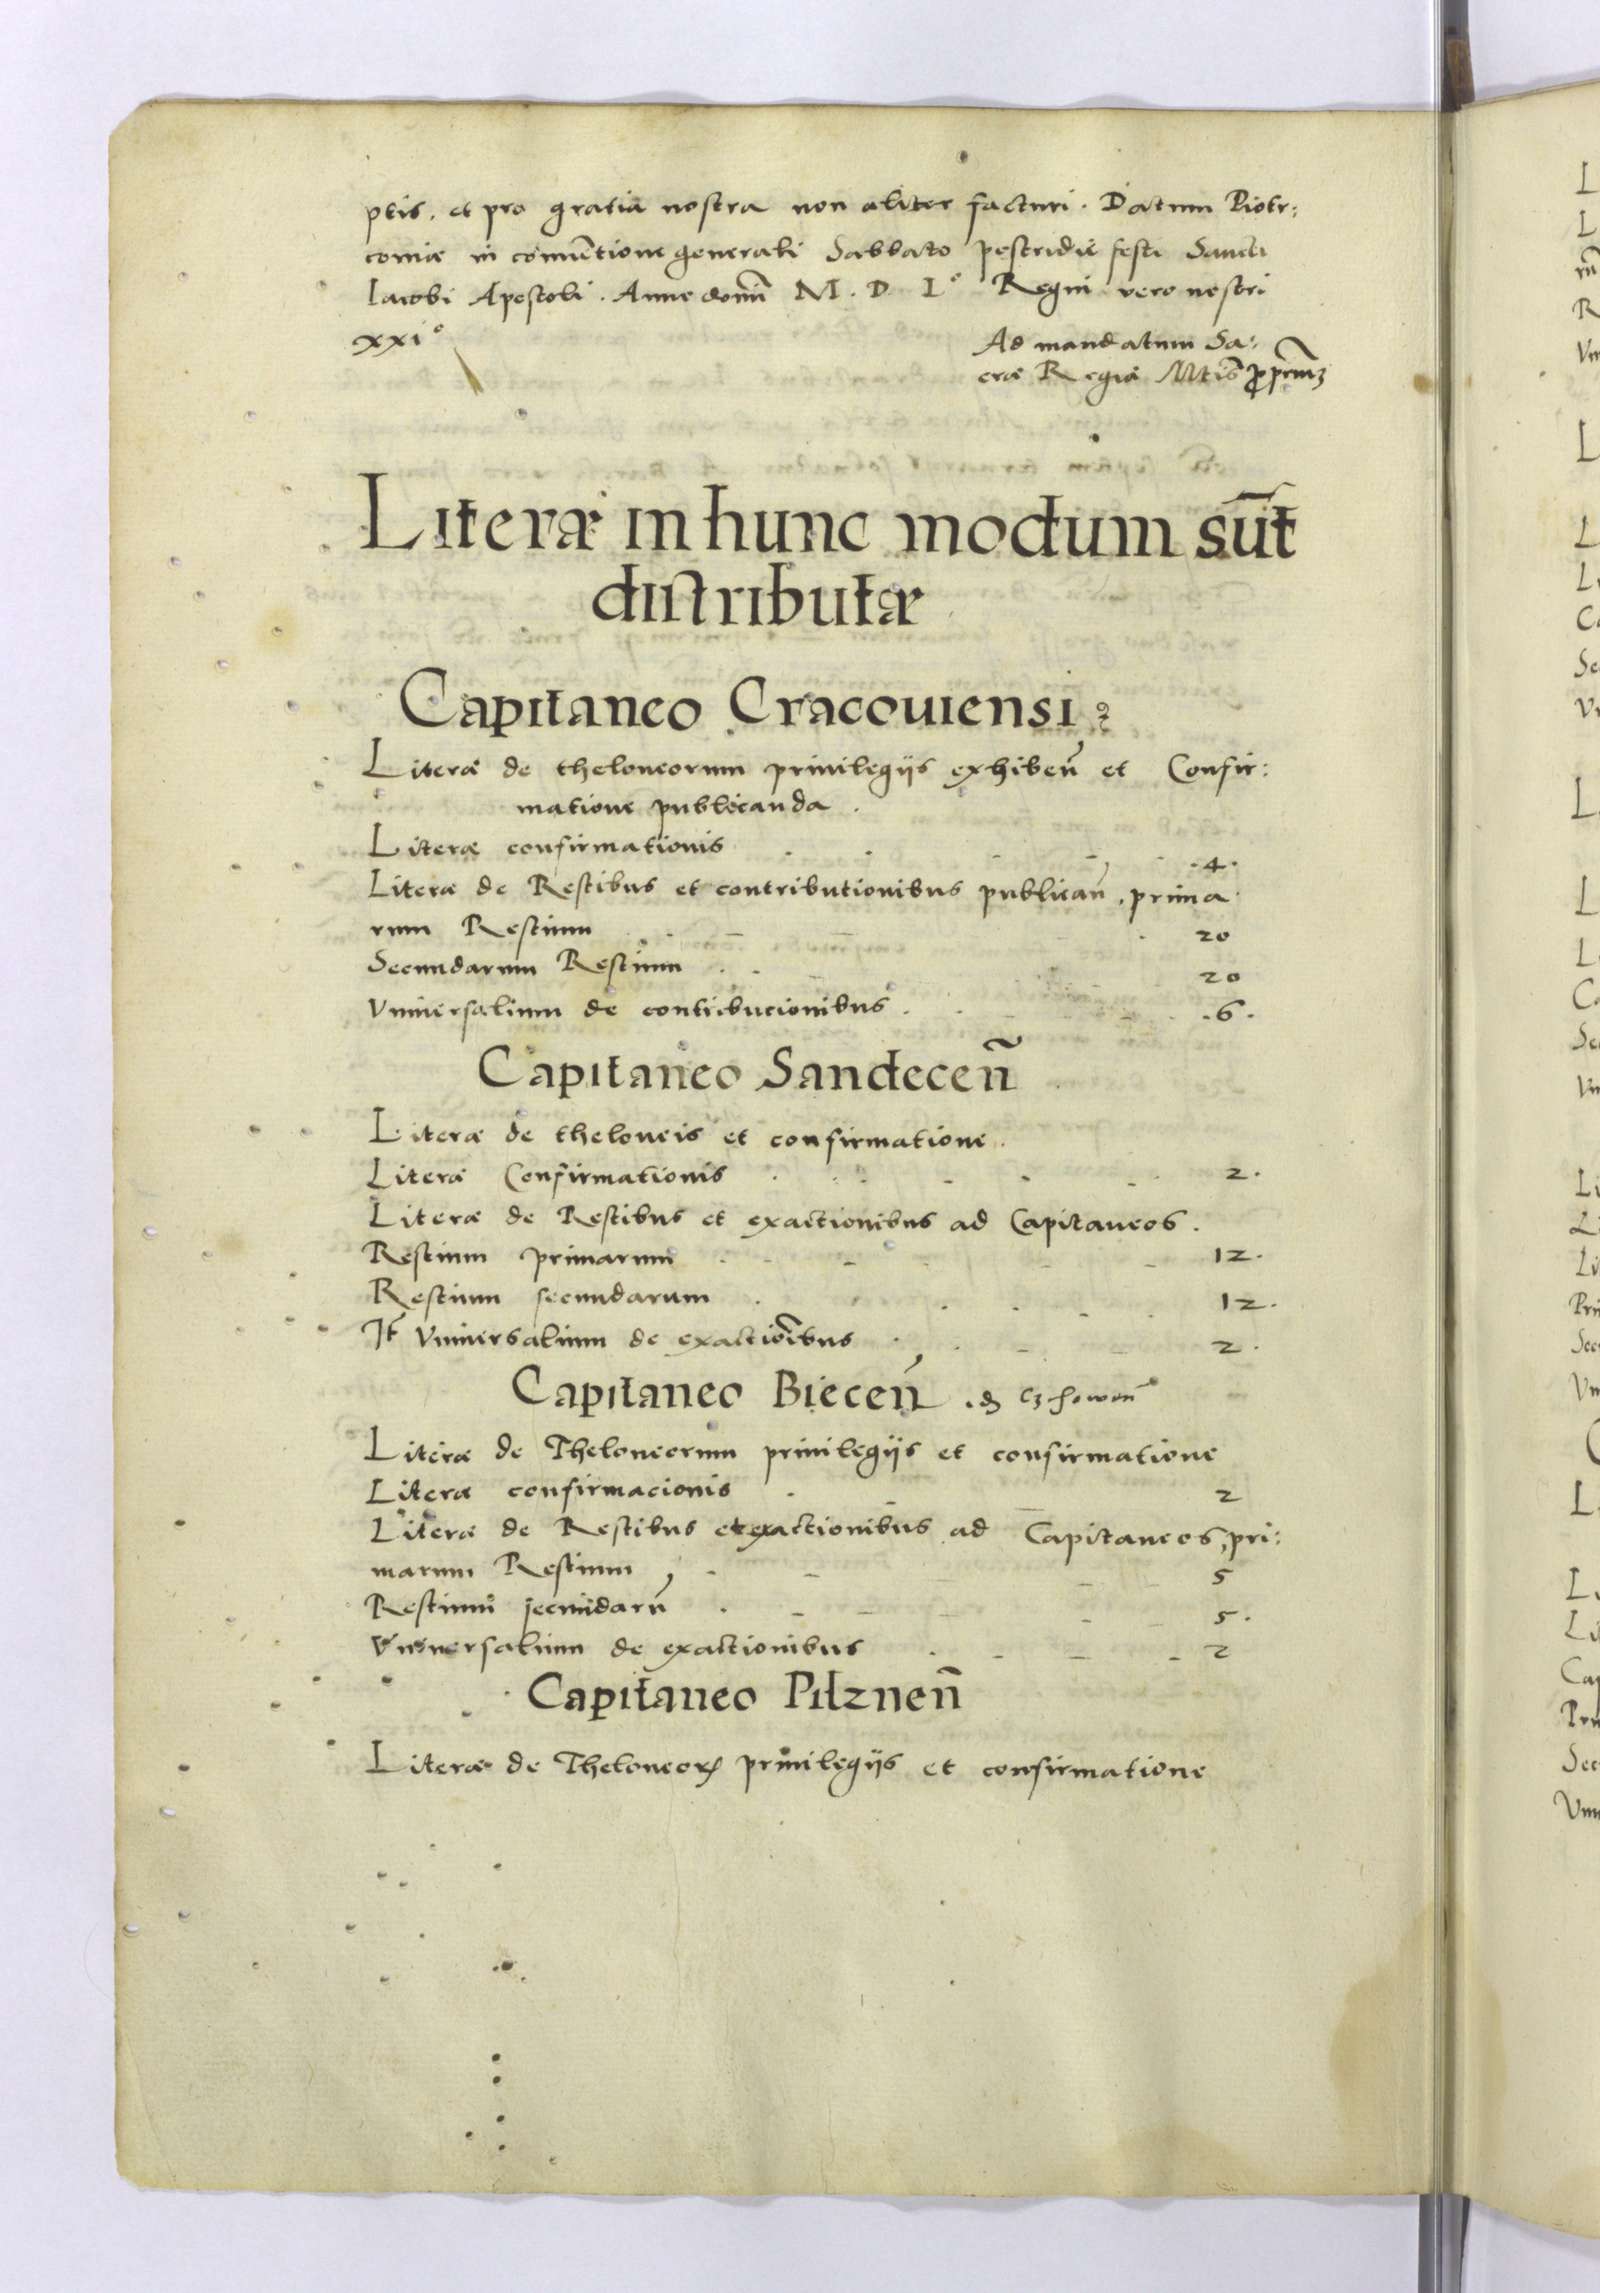 ptis, et pro gratia nostra non aliter facturi. Datum Piotr:
coviæ in conuētione generali Sabbato postridie festi Sancti
Iacobi Apostoli. Anno domī M. D. Lº Regni vero nostri
xxiº
Ad mandatum Sa:
cræ Regiæ Mtīs
Literæ in hunc modum sūt
distributæ
Capitaneo Cracouiensi
Literæ de theloneorum priuilegijs exhibeñ et Confir:
matione publicanda.
Literæ confirmationis .4.
Literæ de Restibus et contributionibus publicañ, prima
rum Restium 20
Secundarum Restium 20
Vniuersalium de contribucionibus .6.
Capitaneo Sandeceñ
Literæ de theloneis et confirmatione.
Literæ Confirmationis 2.
Literæ de Restibus et exactionibus ad Capitaneos.
Restium primarum 12.
Restium secundarum 12.
It Vniuersalium de exactiōibus 2.
Capitaneo Bieceñ
Literæ de Theloneorum priuilegijs et confirmatione
Literæ confirmacionis 2
Literæ de Restibus et exactionibus ad Capitaneos, pri:
marum Restium 5
Restium secundarū 5.
Vniuersalium de exactionibus 2
Capitaneo Pilzneñ
Literæ de Theloneoꝝ priuilegijs et confirmatione